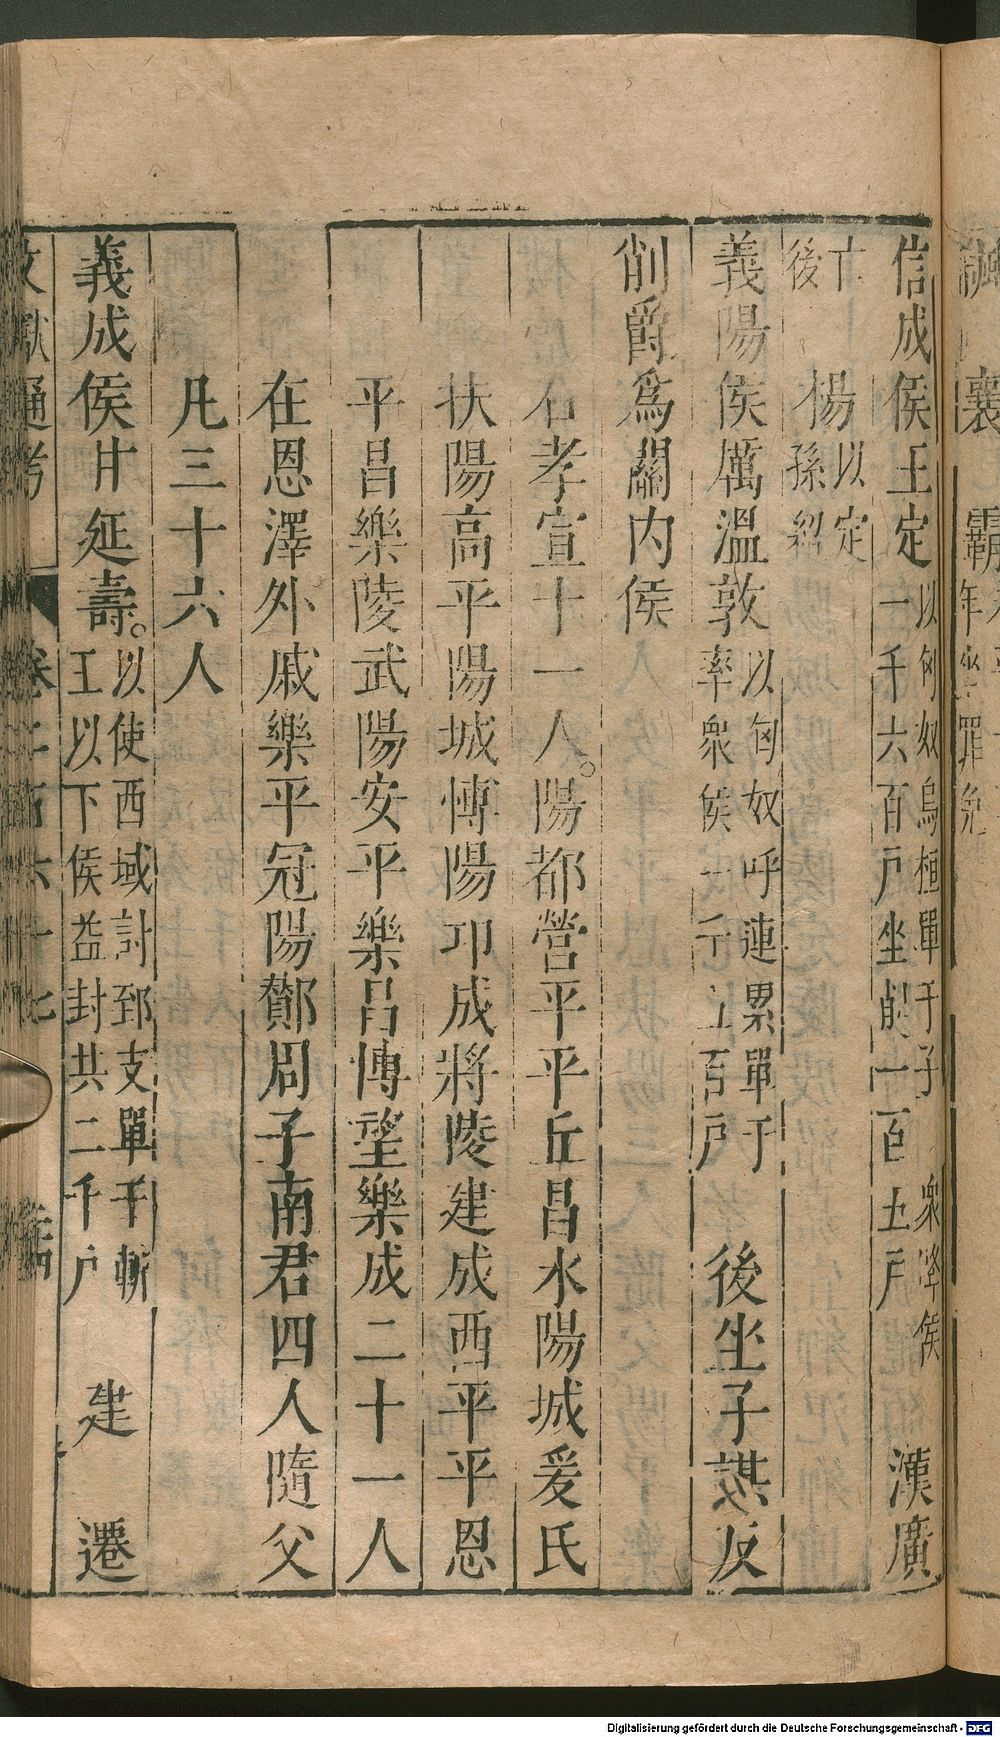 信成侯王定 以匈奴烏桓單于子 衆降侯 一千六百戸坐削一百五戸 漢 廣
亡後 楊 以定孫紹
義陽侯厲溫敦 以匈奴呼連累單于 率衆侯一千五百戸 後坐子謀反
削爵爲關內侯
右孝宣十一人。陽都營平平丘昌水陽城爰氏
扶陽高平陽城博陽邛成將陵建成西平平恩
平昌樂陵武陽安平樂昌博望樂成二十一人
在恩澤外戚樂平冠陽酇周子南君四人隨父
凡三十六人
義成侯甘延壽。 以使西域討郅支單于斬 王以下侯益封共二千戸 建 遷
文獻通考 卷二百六十七
Digitalisierung gefördert durch die Deutsche Forschungsgemeinschaft - DFG